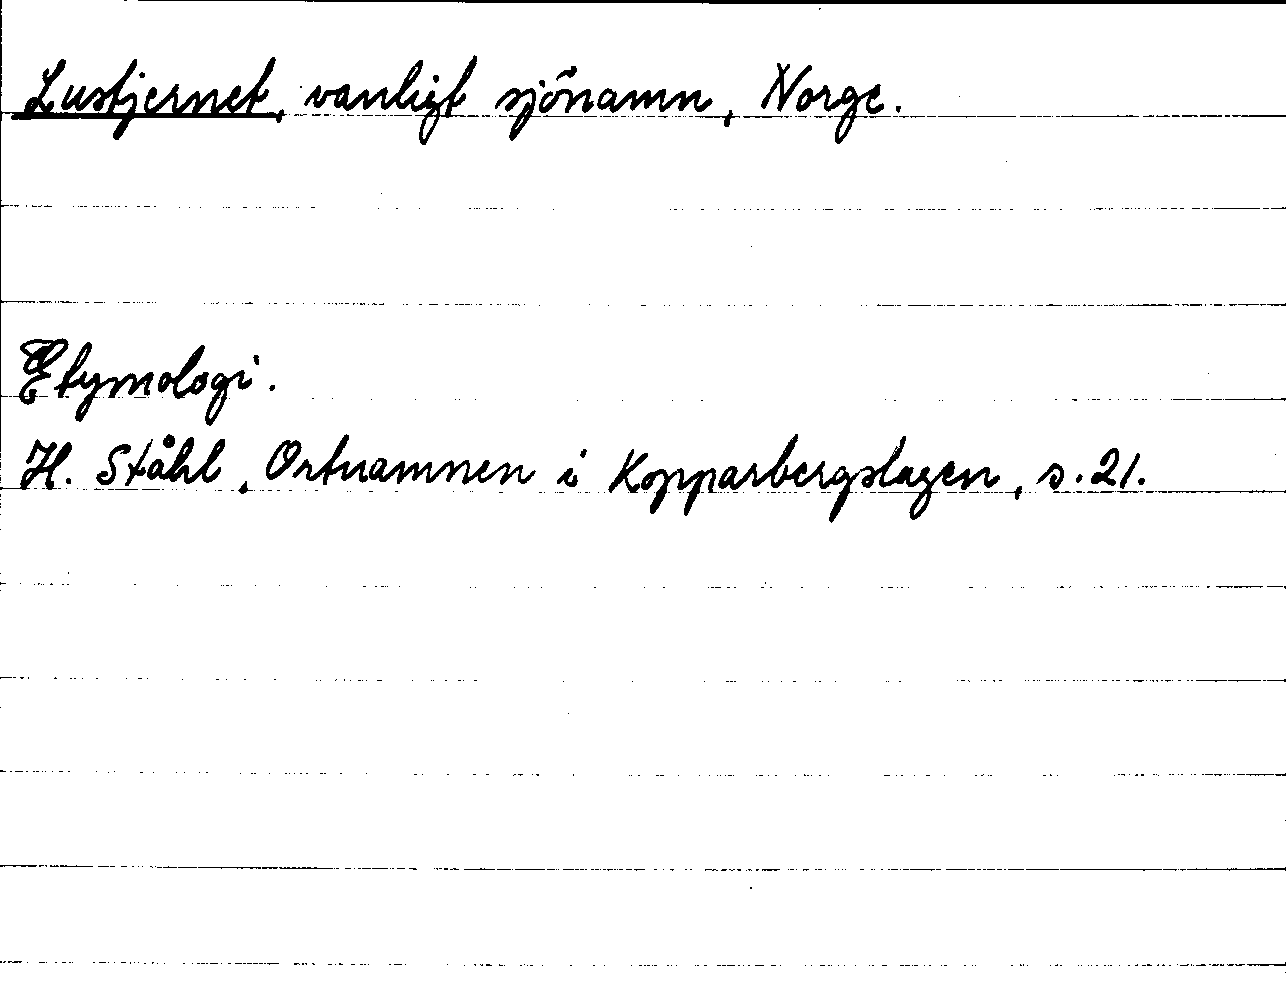 Lustjernet, vanligt sjönamn, Norge.
Etymologi.
H. Ståhl, Ortnamnen i Kopparbergslagen, s. 21.